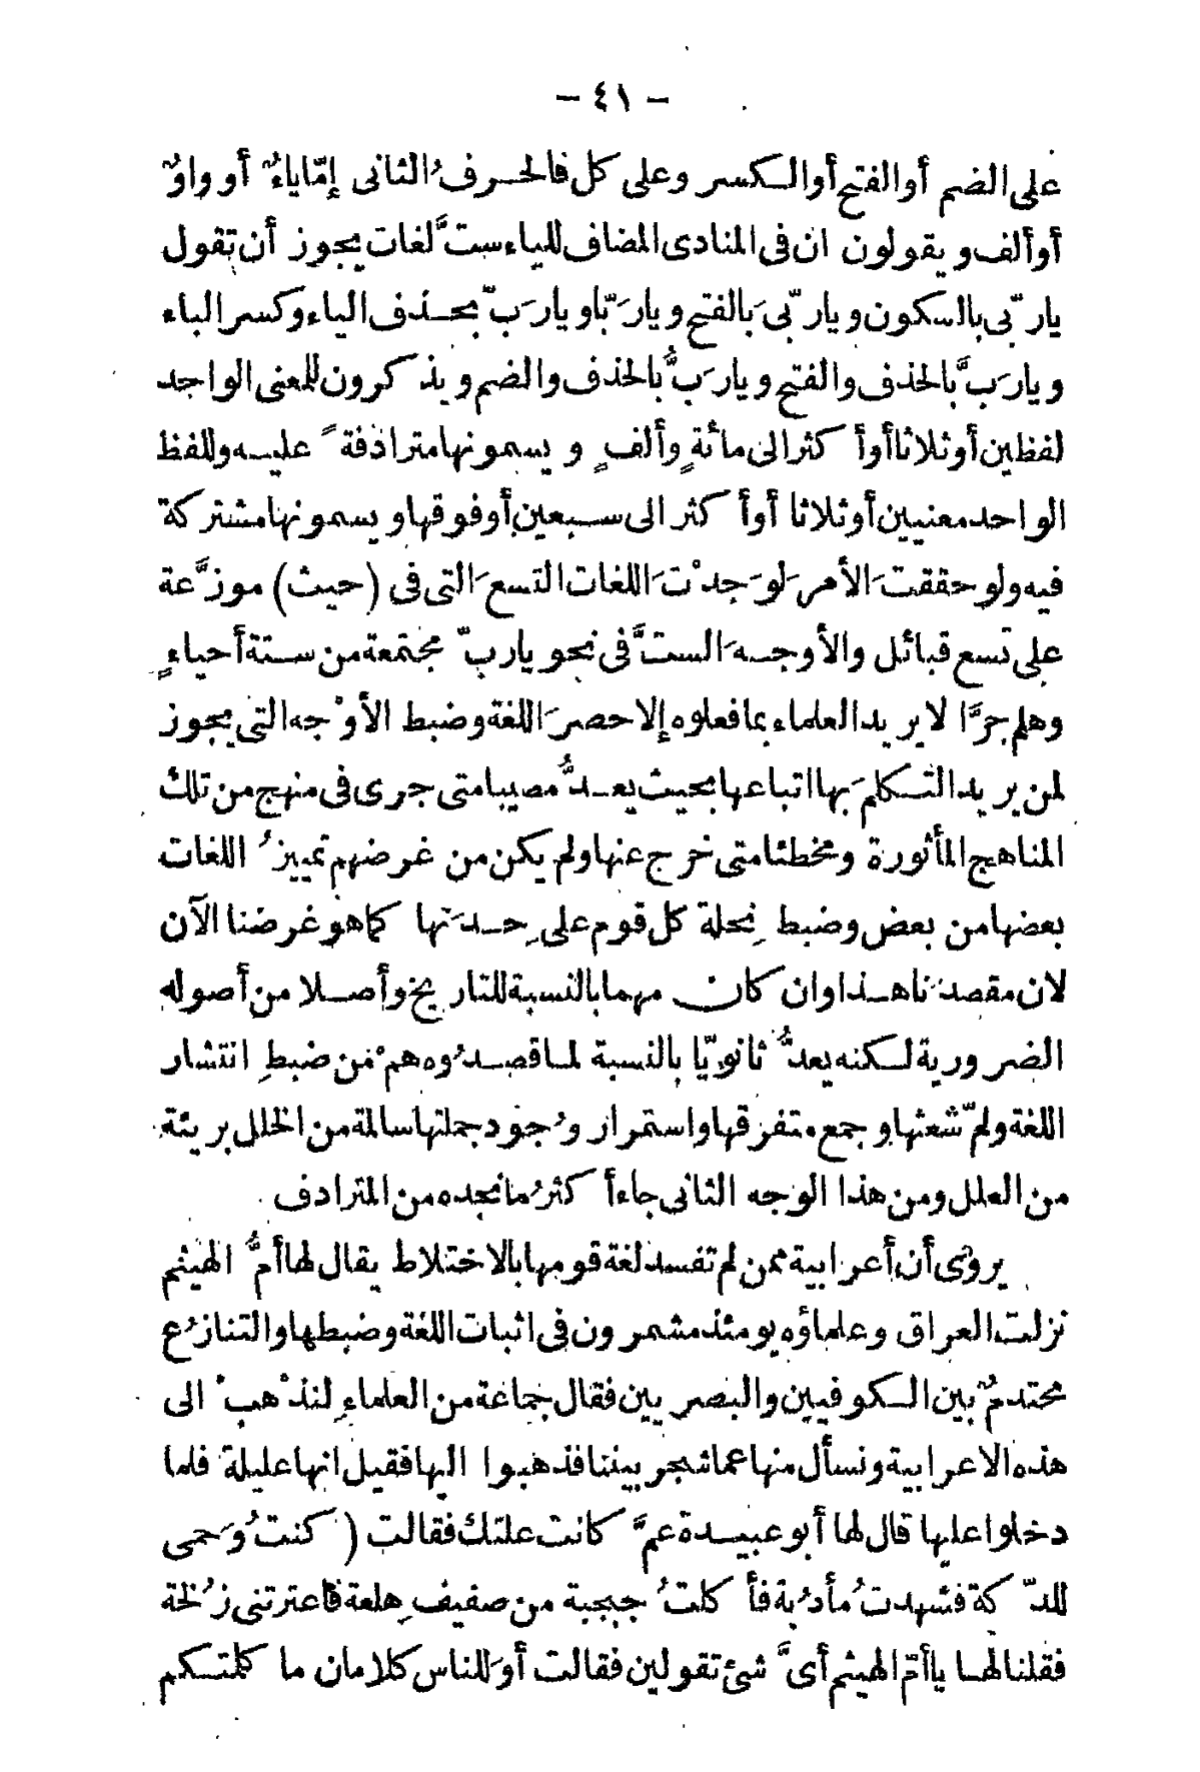 - ٤١ -
على الضم أو الفتح أو الكسر وعلى كل فالحرفُ الثانى إمّا ياءٌ أو واوٌ
أو ألف ويقولون ان فى المنادى المضاف للياء ستَّ لغات يجوز أن تقول
يا ربّى بالسكون ويا ربّىَ بالفتح ويا رَبّا ويا رَبّ بحذف الياء وكسر الباء
ويا رَبَّ بالحذف والفتح ويا رَبُّ بالحذف والضم ويذكرون للمعنى الواحد
لفظين أو ثلاثا أو أكثر الى مائةٍ وألفٍ ويسمونها مترادفةً عليه وللفظ
الواحد معنيين أو ثلاثا أو أكثر الى سبعين أو فوقها ويسمونها مشتركة
فيه ولو حققتَ الأمر لوَجدْتَ اللغات التسعَ التى فى (حيث) موزَّعة
على تسع قبائل والأوجهَ الستَّ فى نحو يا ربّ مجتمعة من ستة أحياءٍ
وهلم جرَّا لا يريد العلماء بما فعلوه إلا حصرَ اللغة وضبط الأوْجه التى يجوز
لمن يريد التكلمَ بها اتباعها بحيث يعدُّ مصيبا متى جرى فى منهج من تلك
المناهج المأثورة ومخطئا متى خرج عنها ولم يكن من غرضهم تمييزُ اللغات
بعضها من بعض وضبط نِحلة كل قوم على حِدَتها كما هو غرضنا الآن
لان مقصدنا هذا وان كان مهما بالنسبة للتاريخ وأصلا من أصوله
الضرورية لكنه يعدُّ ثانويّا بالنسبة لما قصدُوه همْ من ضبطِ انتشار
اللغة ولمّ شعثها وجمع متفرقها واستمرار وُجود جملتها سالمة من الخلل بريئة
من العلل ومن هذا الوجه الثانى جاء أكثرُ ما نجده من المترادف
يروى أن أعرابية ممن لم تفسد لغة قومها بالاختلاط يقال لها أمُّ الهيثم
نزلت العراق وعلماؤه يومئذ مشمرون فى اثبات اللغة وضبطها والتنازُع
محتدمٌ بين الكوفيين والبصريين فقال جماعة من العلماءِ لنذْهبْ الى
هذه الاعرابية ونسأل منها عما شجر بيننا فذهبوا اليها فقيل انها عليلة فلما
دخلوا عليها قال لها أبو عبيدة عمَّ كانت علتك فقالت ( كنتُ وَحمى
للدّكة فشهدتُ مأدُبة فأكلتُ جبجبة من صفيف هِلعة فاعترتنى زُلخة
فقلنا لها يا أمّ الهيثم أىَّ شئ تقولين فقالت أوَ للناس كلامان ما كلمتكم